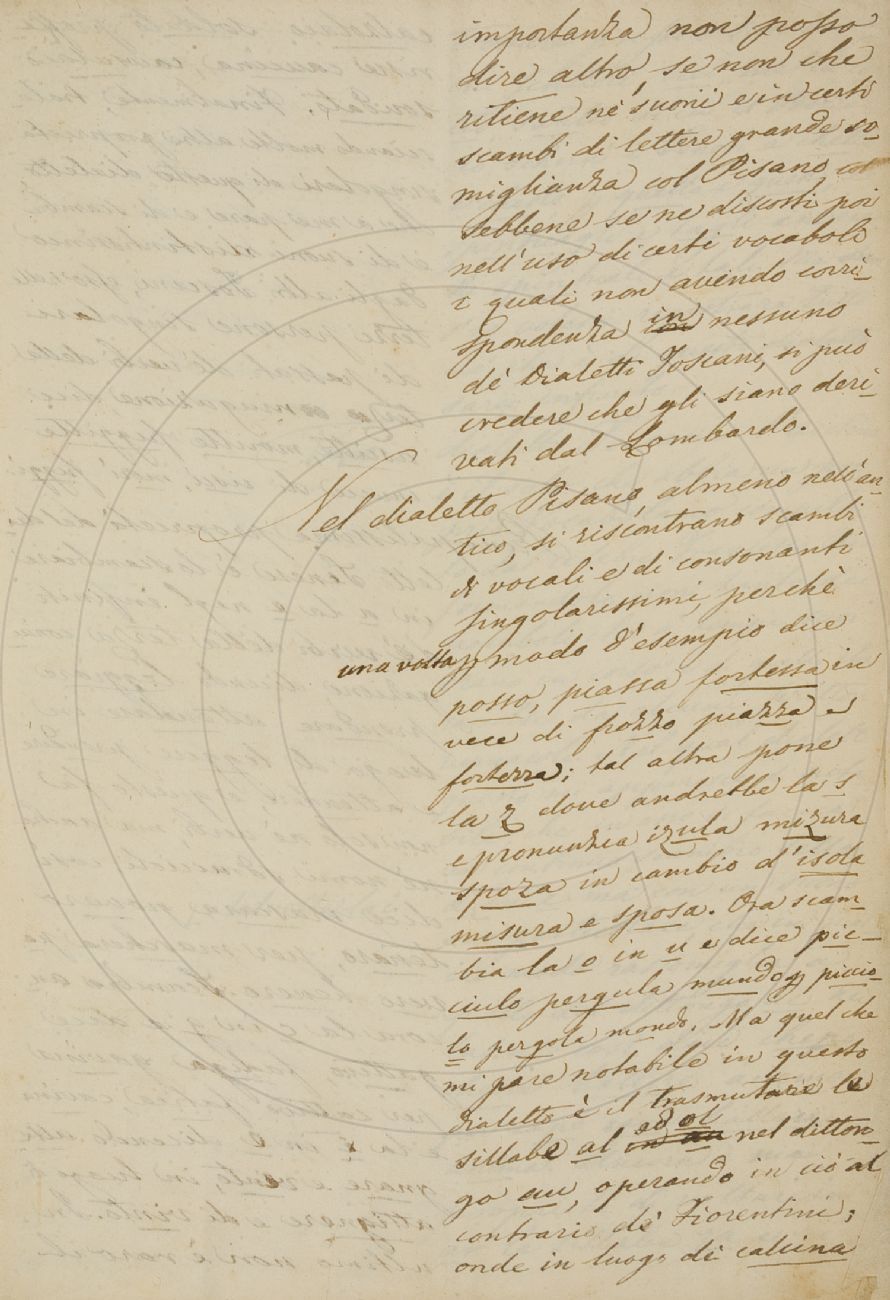 importanza non posso
dire altro se non che
ritiene ne' suoni e in certi
scambi di lettere grande so-
miglianza col Pisano, col
sebbene se ne discosti poi
nell'uso di certi vocaboli
i quali non avendo corri-
spondenza in nessuno
de' Dialetti Toscani, si può
credere che gli siano deri-
vati dal Lombardo.
Nel dialetto Pisano, almeno nell'an-
tico, si riscontrano scambi
di vocali e di consonanti
singolarissimi, perchè
una volta p modo d'esempio dice
posso, piassa fortessa in
vece di pozzo piazza e
fortezza; tal altra pone
la z dove andrebbe la s
e pronunzia izula mizura
spoza in cambio d'isola
misura e sposa. Ora scam-
bia la o in u e dice pic-
ciulo pergula mundo p piccio-
lo pergola mondo. Ma quel che
mi pare notabile in questo
dialetto è il trasmutare le
sillabe al ed ol nel ditton-
go au, operando in ciò al
contrario de' Fiorentini;
onde in luogo di calcina